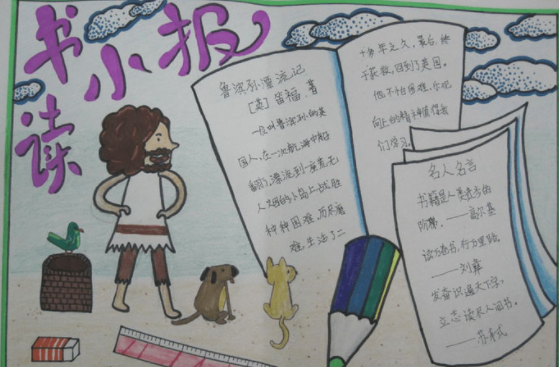 读书小报
鲁滨孙漂流记
[英]笛福·著
一区叫鲁滨孙的英
国人,在一次航海中船
翻了,漂流到一座荒无
人烟的小岛上,战胜
种种困难,历尽磨
难,生活了二
十余年之久,最后,终
于获救,回到了英国。
他不怕困难,乐观
向上的精神值得我
们学习。
名人名言
书籍是人类进步的
阶梯。——高尔基
读万卷书,行万里路
——刘彝
发奋识遍天下字,
立志读尽人间书。
——苏轼